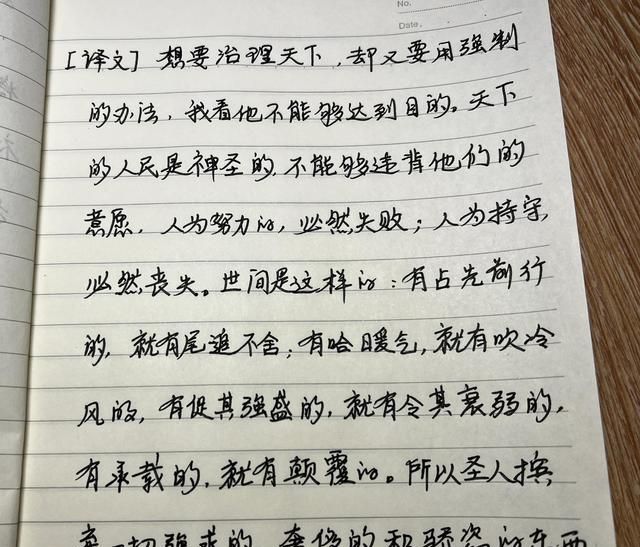 No.
Date.
[译文] 想要治理天下，却又要用强制
的办法，我看他不能够达到目的。天下
的人民是神圣的，不能够违背他们的
意愿，人为努力的，必然失败；人为持守，
必然丧失。世间是这样的：有占先前行
的，就有尾追不舍；有哈暖气，就有吹冷
风的，有促其强盛的，就有令其衰弱的，
有承载的，就有颠覆的。所以圣人摈
弃一切强求的、奢侈的和骄恣的东西